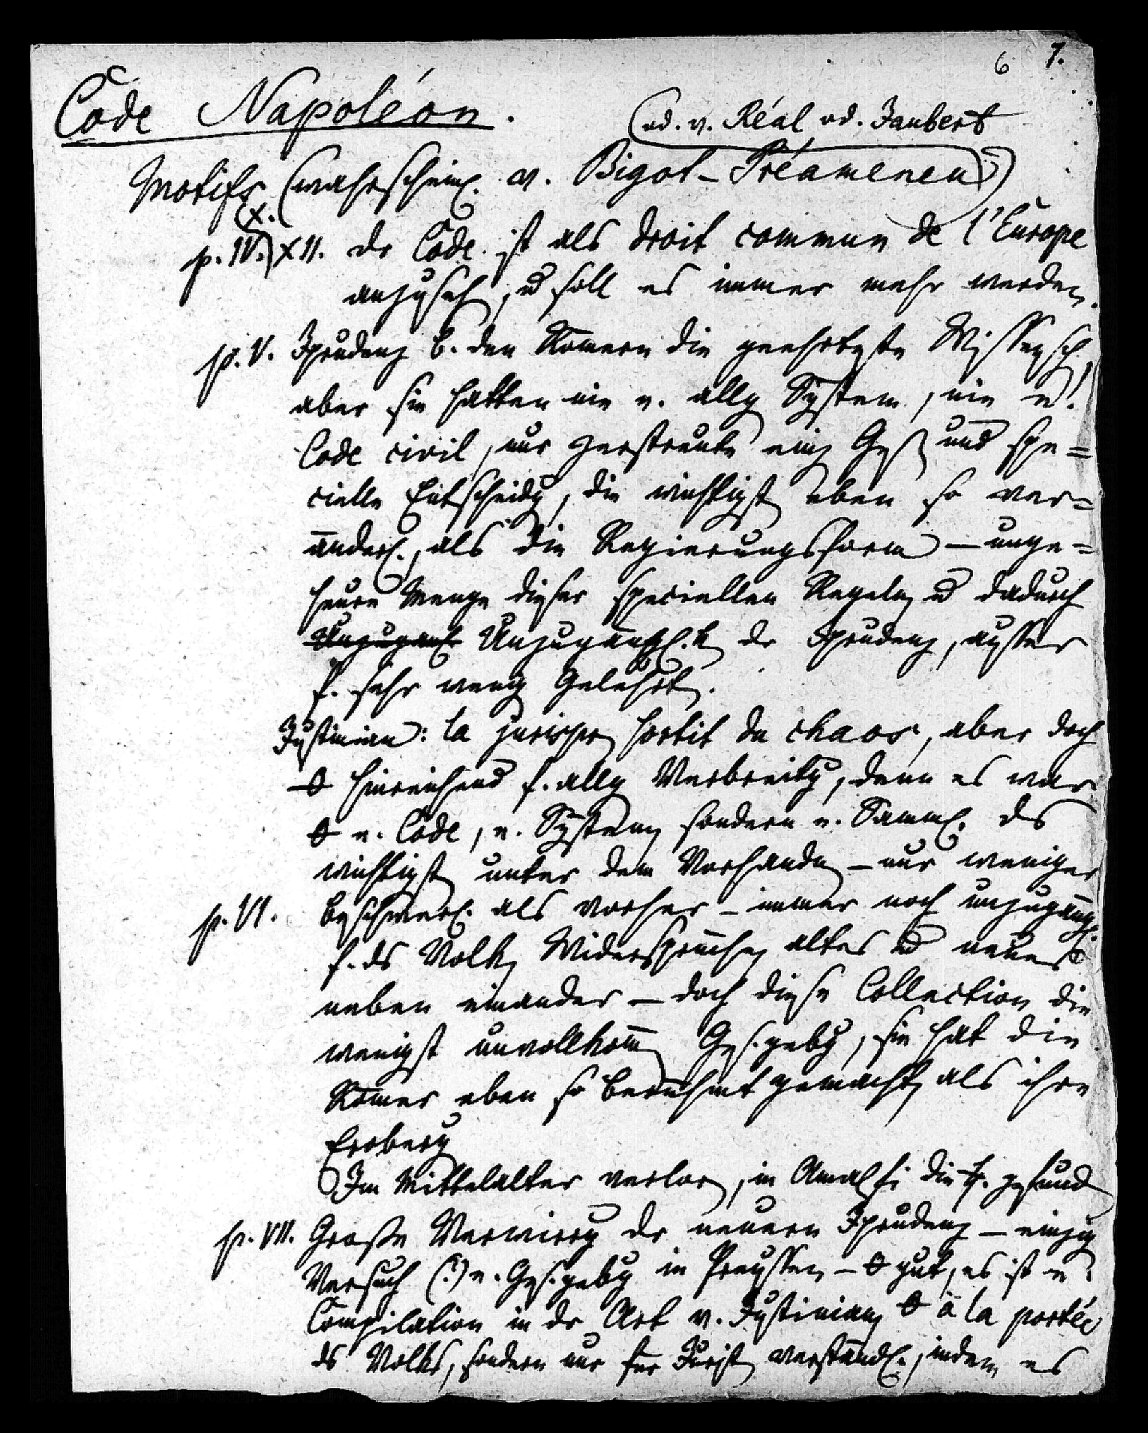 6 7.
Code Napoléon.
(od. v. Réal od. Jaubert
Motifs (wahrscheinl. v. Bigot-Préameneu)
X.
p. IV.) XII. dr Code ist als droit commun de l'Europe
anzusehn, u soll es immer mehr werden.
p. V. Jprudenz b. den Römern die geehrteste Wissensch.,
aber sie hatten nie e. allg System, nie e.
Code civil, nur zerstreute einz Ges und spe=
cielle Entscheidg, die wichtigst eben so ver=
änderl., als die Regierungsform – unge=
heure Menge dieser speciellen Regeln u dadurch
Unzugänl Unzugänglk. dr Jprudenz, ausser
f. sehr wenig Gelehrte.
Justinian: la jurispr sortit du chaos, aber doch
hinreichend f. allg Verbreitg, denn es war
e. Code, e. System sondern e. Samml. ds
wichtigst unter dem Vorhandn – nur weniger
p. VI. beschwerl. als vorher – immer noch unzugängl.
f. ds Volk, Widersprüche, altes u neues
neben einander – doch diese Collection die
wenigst unvollkomm Ges.gebg, sie hat die
Römer eben so berühmt gemacht, als ihre
Eroberg
Im Mittelalter verlor, in Amalfi die gefund
p. VII. Große Verwirrg dr neuern Jprudenz – einzig
Versuch (:) e. Ges.gebg in Preussen – gut, es ist e.
Compilation in dr Art v. Justinian, à la portée
ds Volks, sondern nur für Jurist verständl., indem es